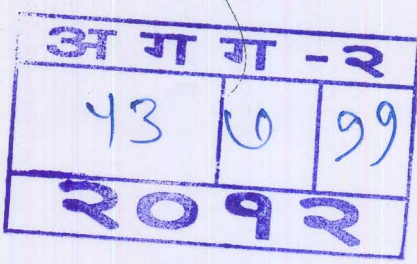 अ ग ग - २
५३ ७ ११
२०१२